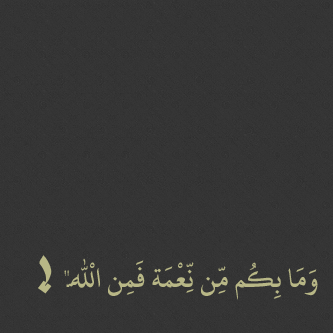 وَمَا بِكُم مِّن نِّعْمَة فَمِن الْله" !